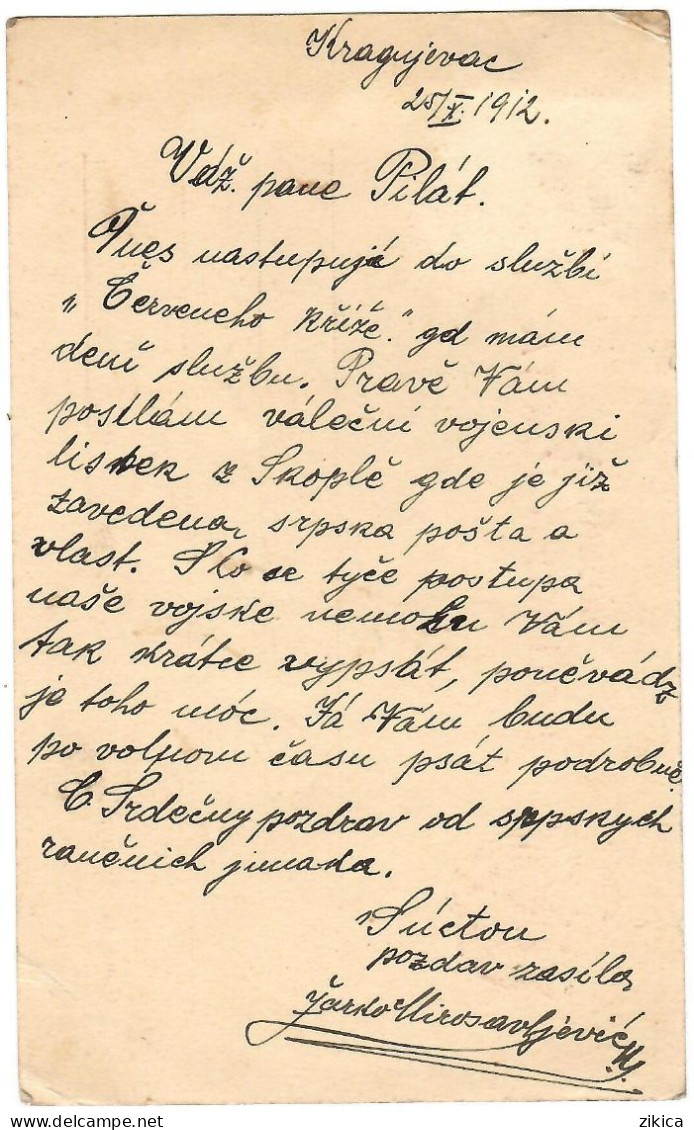 Kragujevac
25/X. 1912.
Váž. pane Pilát.
Dnes nastupujé do službi
„Červeneho Kříže." gd mám
deni službu. Pravě Vám
posílám váleční vojenski
listek z Skoplě gde je již
zavedena srpska pošta a
vlast. Sto se tyče postupa
naše vojske nemohu Vám
tak krátce vypsát, poněvádz
je toho móc. Já Vám budu
po volnom času psát podrobně.
Srdečny pozdrav od srpskych
raněnich junaka.
Súctou
pozdav zasíla
Žarko Mirosavljević
zikica